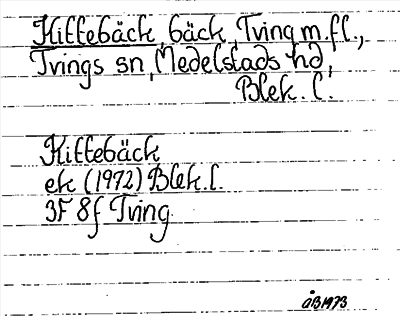 Kittebäck, bäck, Tving m.fl.,
Tvings sn, Medelstads hd,
Blek. l.
Kittebäck
ek (1972) Blek. l.
3F 8f Tving
ÅB 1973